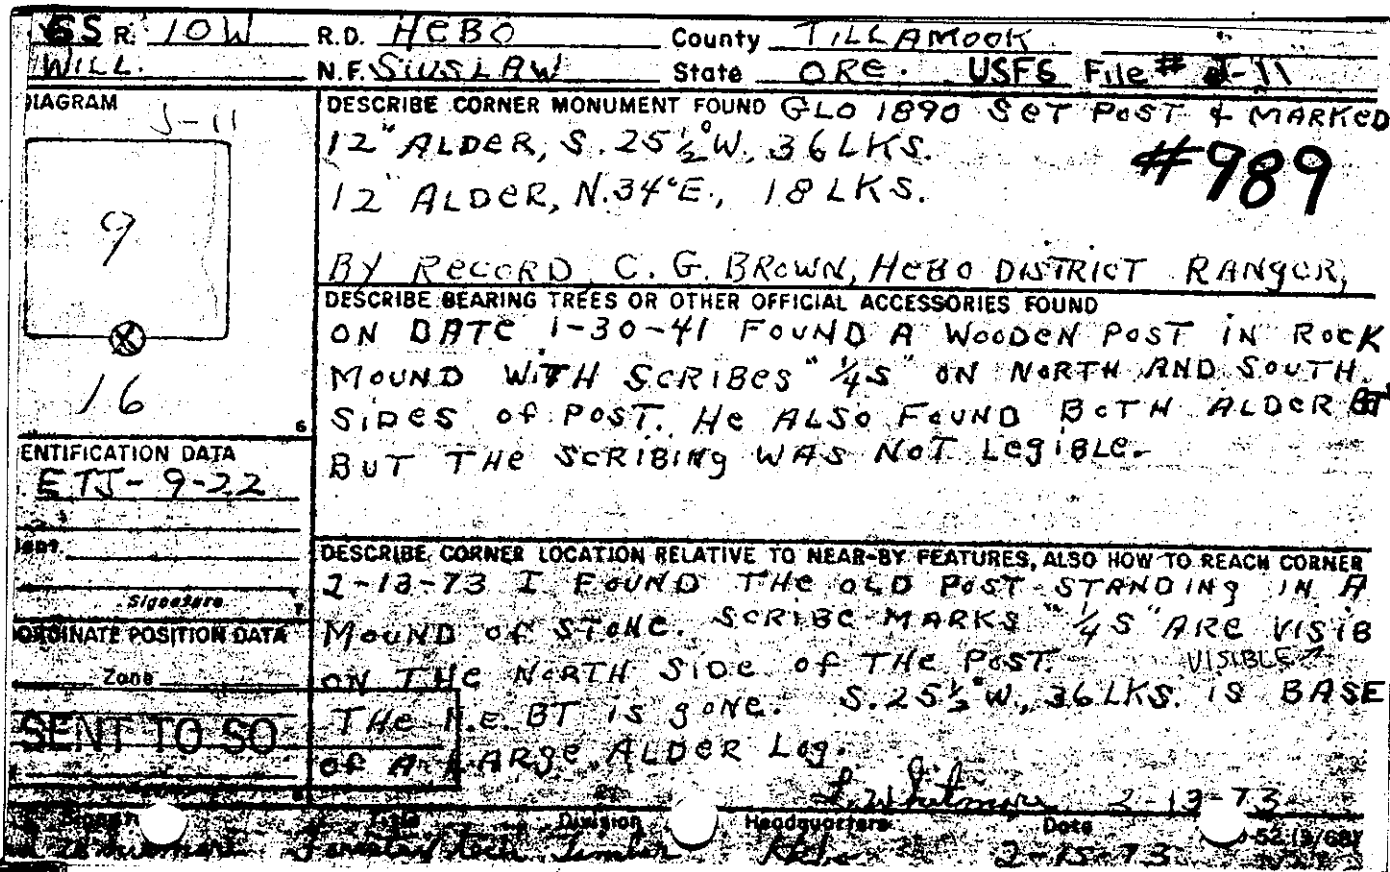 6S R. 10W R.D. HEBO County TILLAMOOK
WILL. N.F. SIUSLAW State ORE. USFS File # J-11
DIAGRAM
J-11
9
16
6
DESCRIBE CORNER MONUMENT FOUND GLO 1890 SET POST & MARKED
12" ALDER, S. 25½°W. 36 LKS.
#989
12" ALDER, N.34°E., 18 LKS.
BY RECORD C. G. BROWN, HEBO DISTRICT RANGER,
DESCRIBE BEARING TREES OR OTHER OFFICIAL ACCESSORIES FOUND
ON DATE 1-30-41 FOUND A WOODEN POST IN ROCK
MOUND WITH SCRIBES "¼S" ON NORTH AND SOUTH
SIDES OF POST. HE ALSO FOUND BOTH ALDER BT
BUT THE SCRIBING WAS NOT LEGIBLE.
ENTIFICATION DATA
ETJ-9-22
Signature 7
ORDINATE POSITION DATA
Zone
SENT TO SO
DESCRIBE CORNER LOCATION RELATIVE TO NEAR-BY FEATURES, ALSO HOW TO REACH CORNER
2-13-73 I FOUND THE OLD POST STANDING IN A
MOUND OF STONE. SCRIBE MARKS "¼S" ARE VISIB
VISIBLE
ON THE NORTH SIDE OF THE POST.
THE N.E. BT IS GONE. S.25½°W., 36 LKS. IS BASE
OF A LARGE ALDER LOG.
L. Whitmore 2-13-73
Title Division Headquarters Date
Forestry Tech Timber Hebo 2-15-73